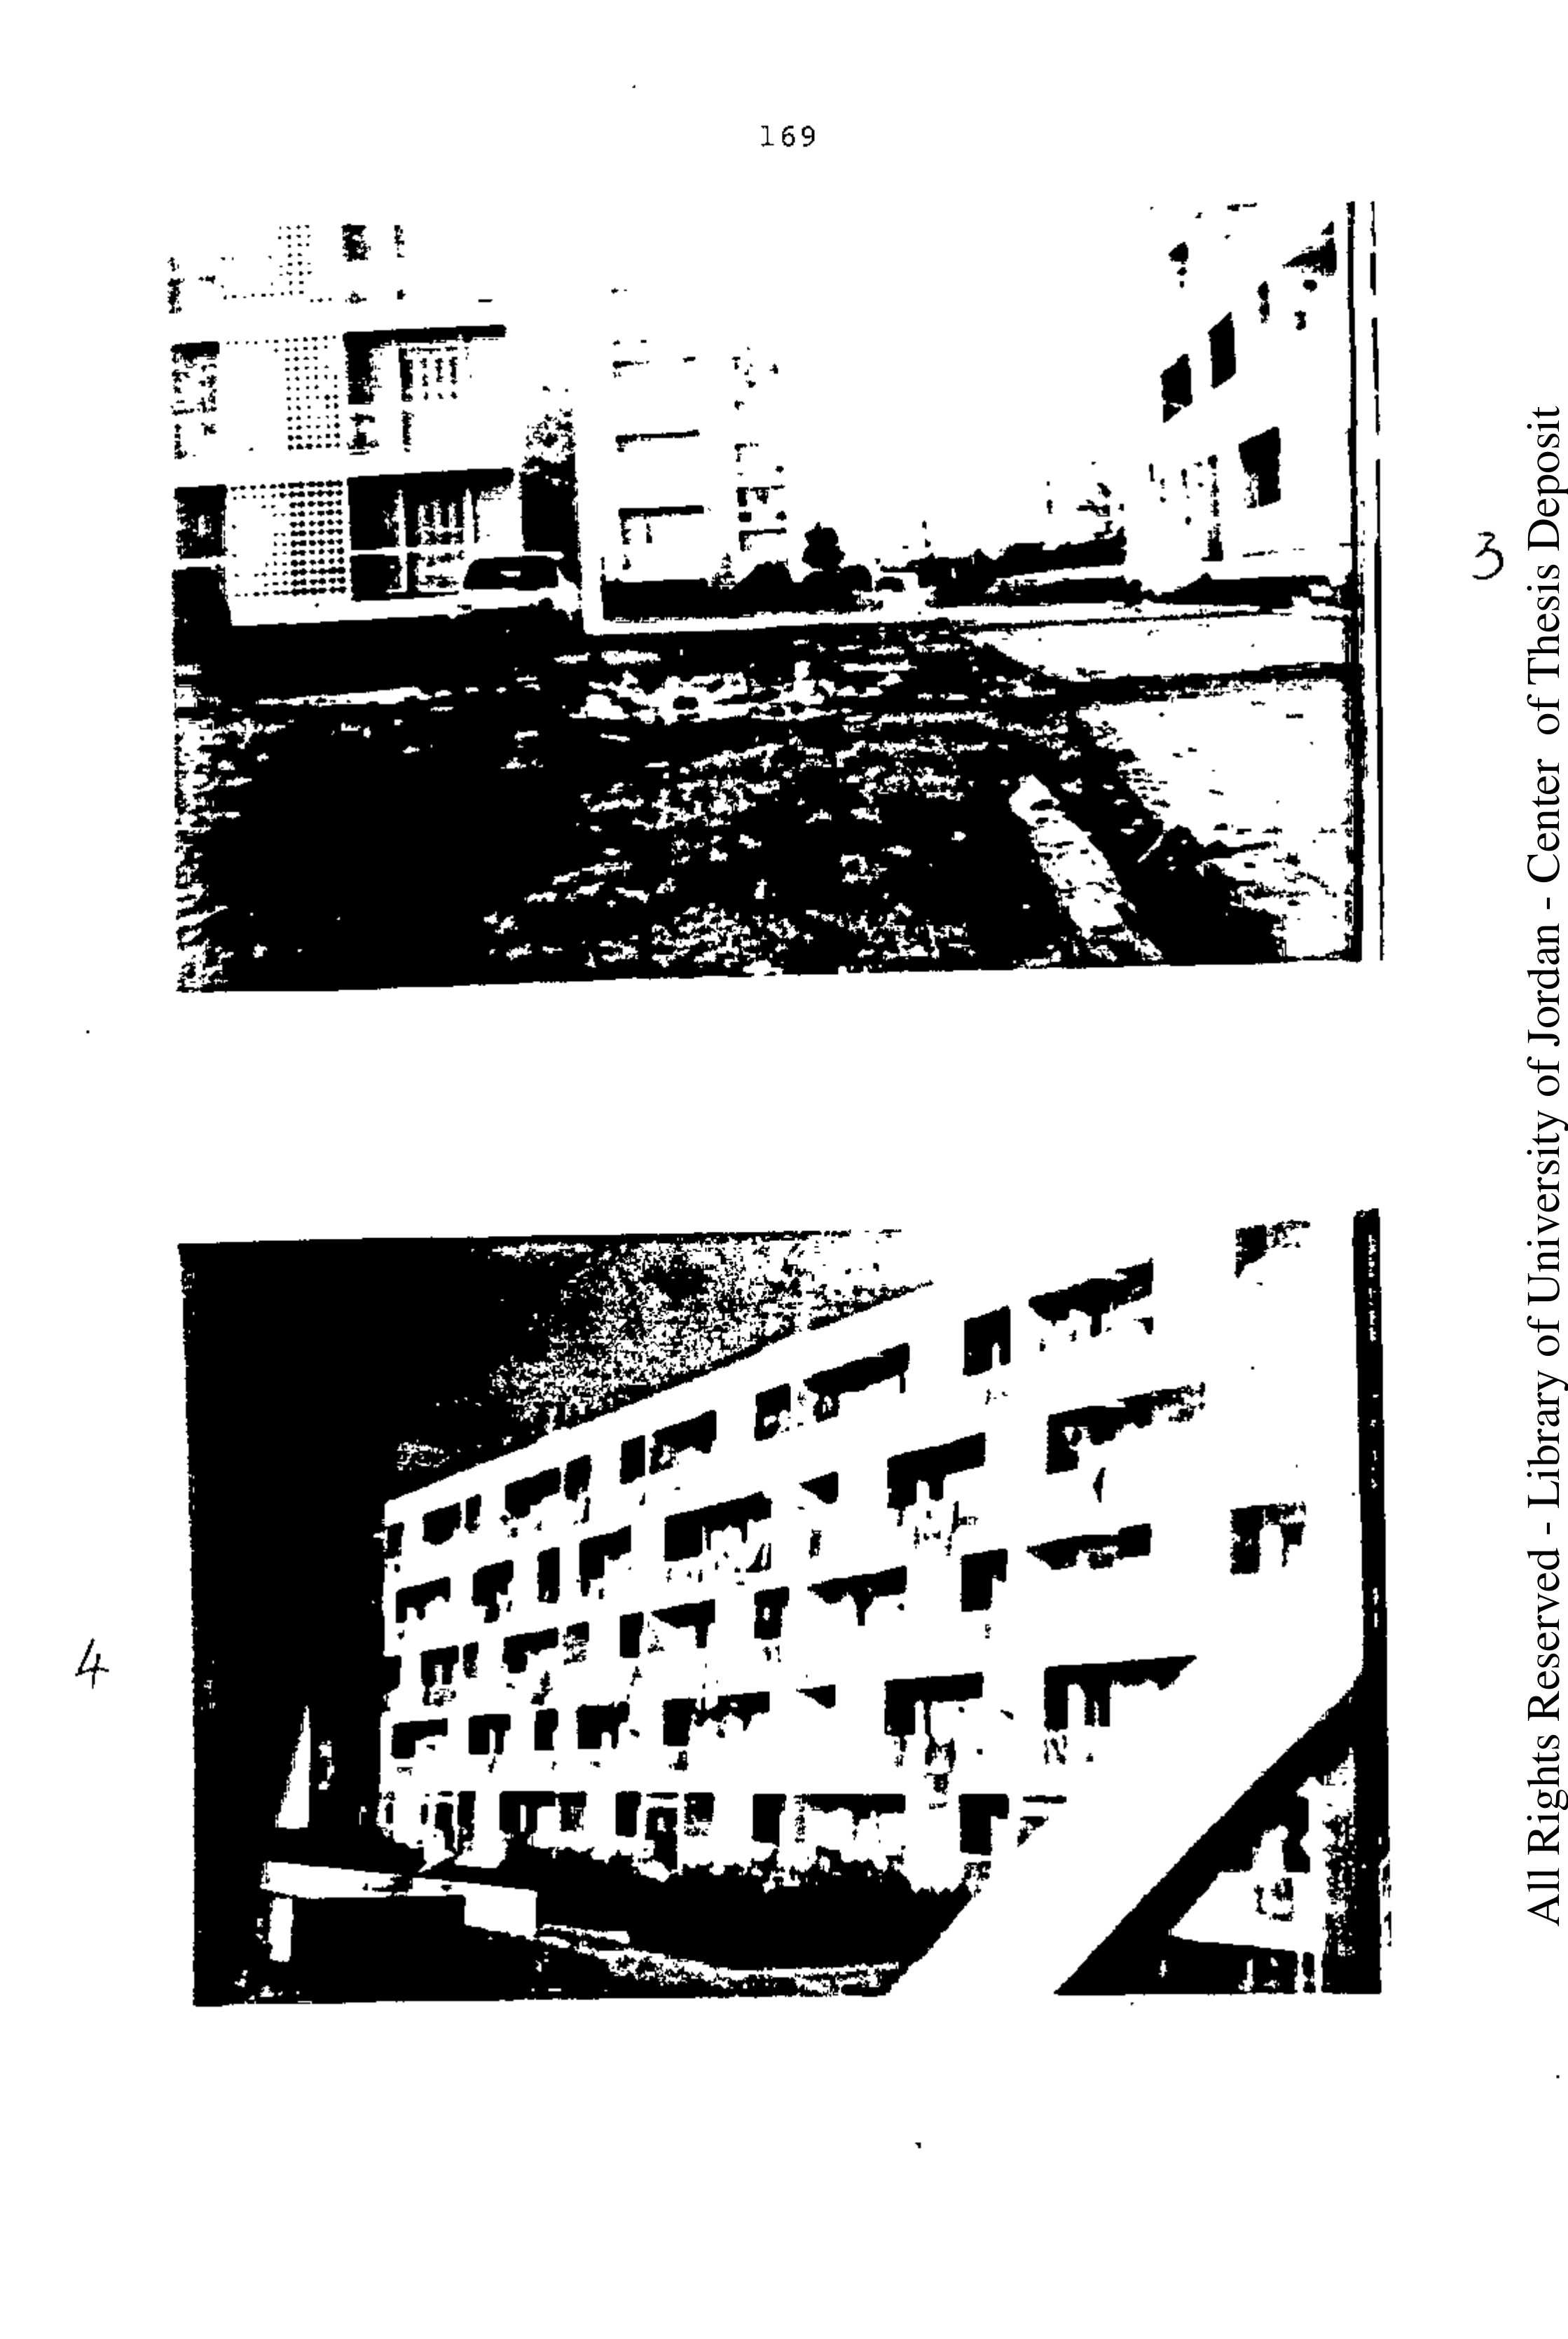 169
3
4
All Rights Reserved - Library of University of Jordan - Center of Thesis Deposit